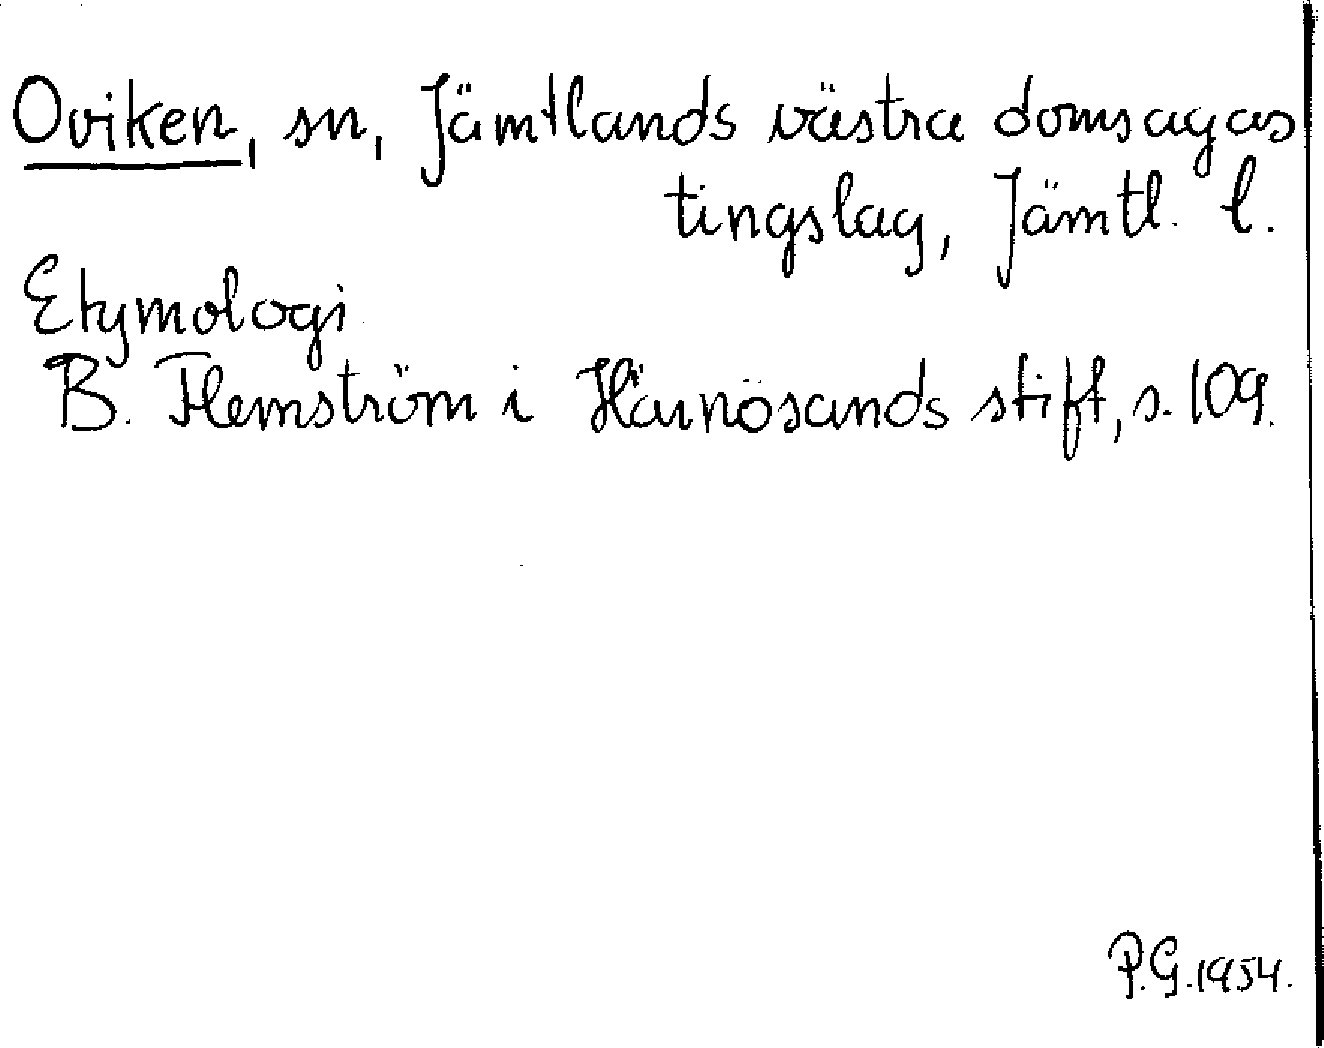 Oviken, sn, Jämtlands västra domsagas
tingslag, Jämtl. l.
Etymologi
B. Flemström i Härnösands stift, s. 109.
P.G. 1954.